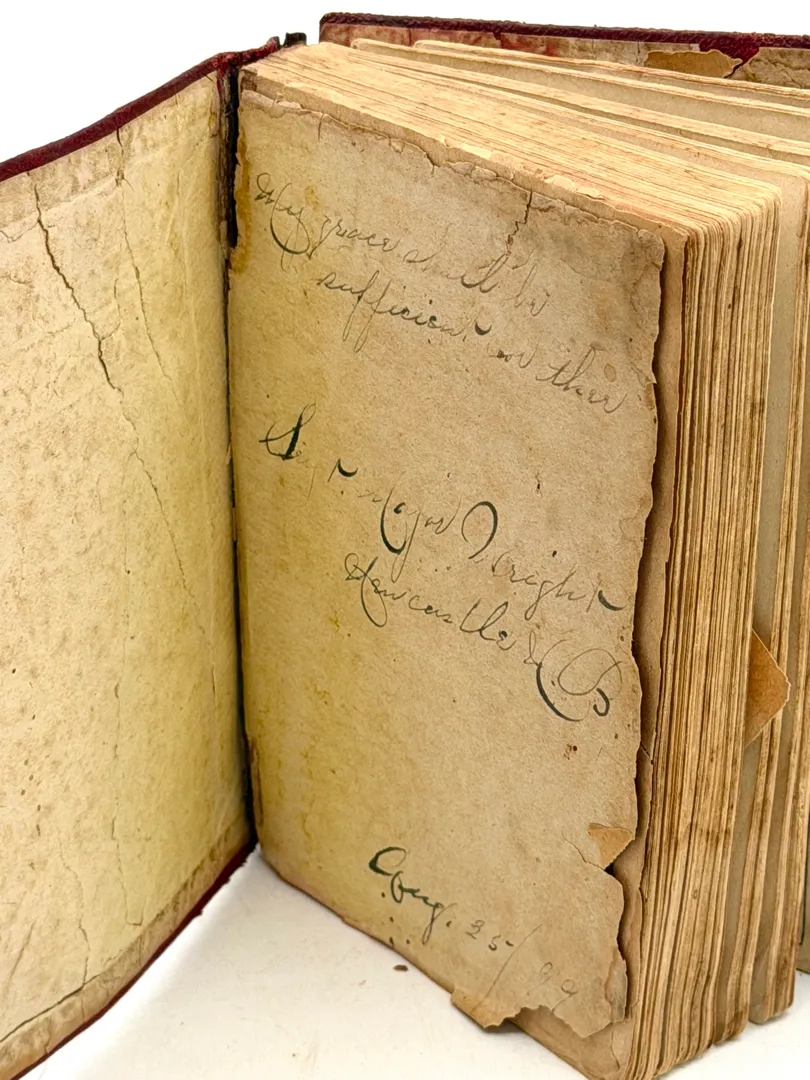 My grace shall be
sufficient for thee
Serg't. Major Wright
Newcastle N.B
Aug. 25/99